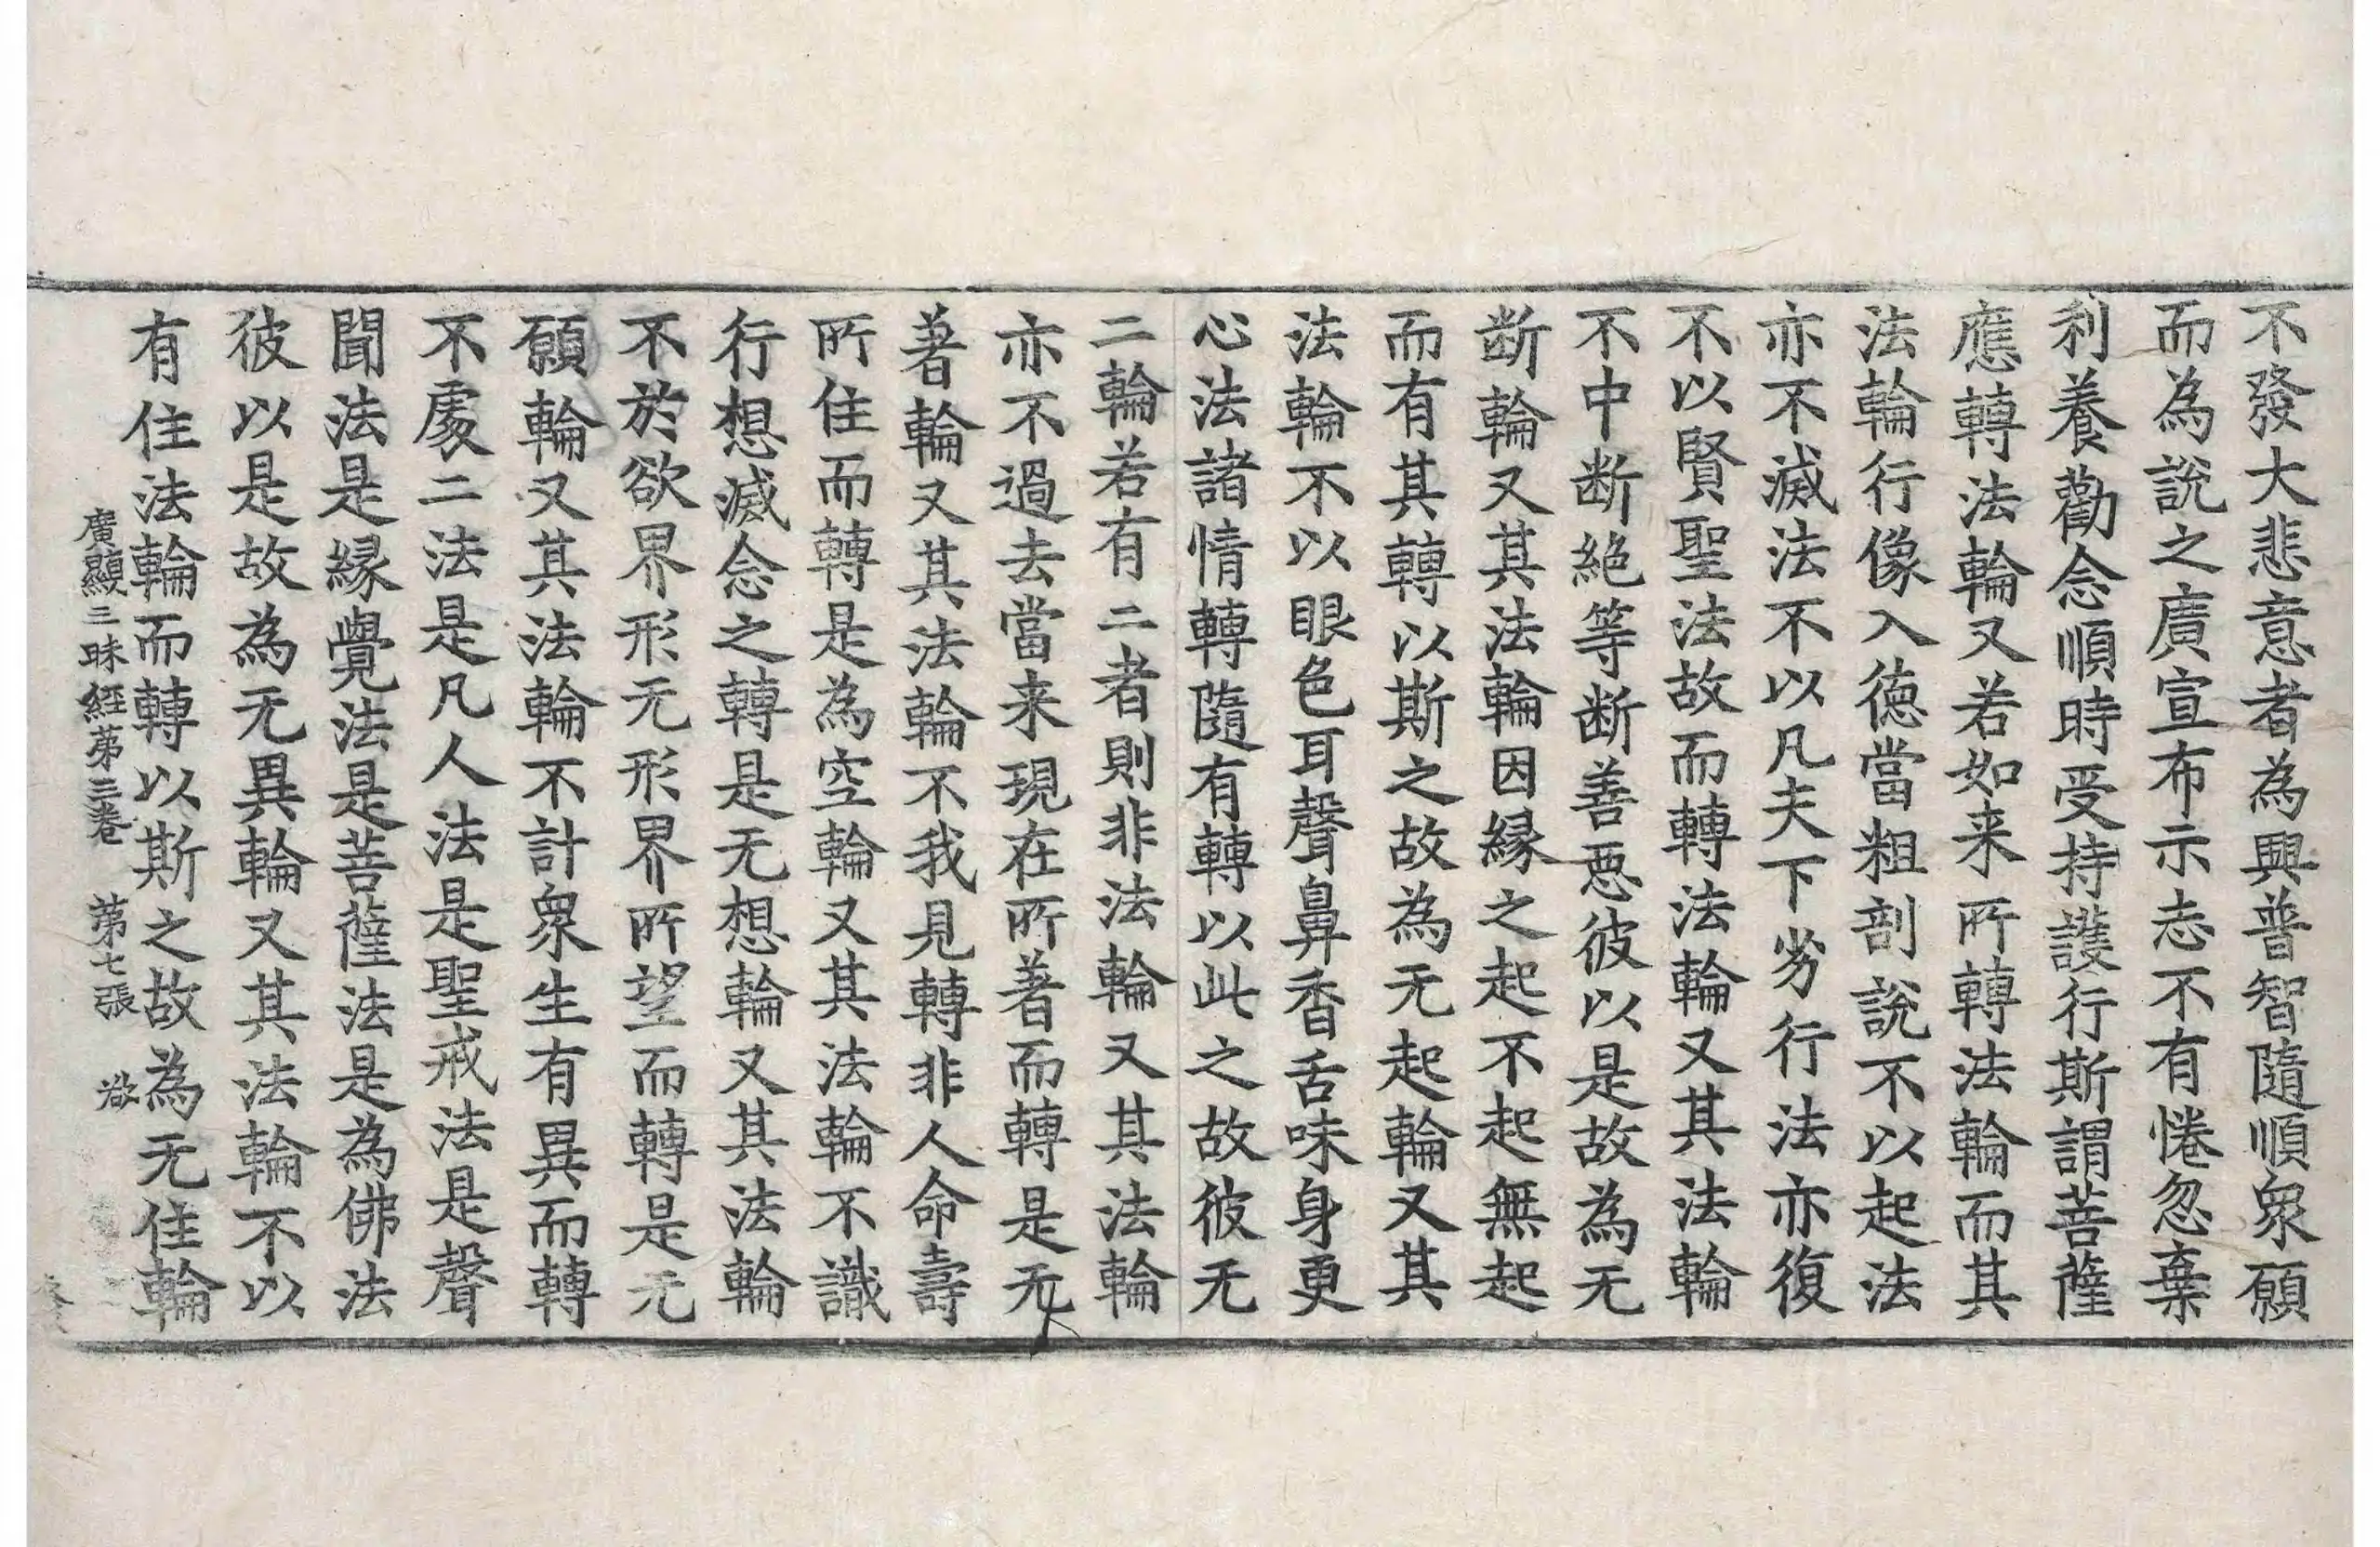 不發大悲意者為興普智隨順衆願
而為說之廣宣布示志不有惓忽棄
利養勸念順時受持護行斯謂菩薩
應轉法輪又若如来所轉法輪而其
法輪行像入德當粗剖說不以起法
亦不滅法不以凡夫下劣行法亦復
不以賢聖法故而轉法輪又其法輪
不中断絕等断善惡彼以是故為无
断輪又其法輪因緣之起不起無起
而有其轉以斯之故為无起輪又其
法輪不以眼色耳聲鼻香舌味身更
心法諸情轉隨有轉以此之故彼无
二輪若有二者則非法輪又其法輪
亦不過去當来現在所著而轉是无
著輪又其法輪不我見轉非人命壽
所住而轉是為空輪又其法輪不識
行想滅念之轉是无想輪又其法輪
不於欲界形无形界所望而轉是无
願輪又其法輪不計衆生有異而轉
不處二法是凡人法是聖戒法是聲
聞法是緣覺法是菩薩法是為佛法
彼以是故為无異輪又其法輪不以
有住法輪而轉以斯之故為无住輪
廣顯三昧經第三卷 第七張